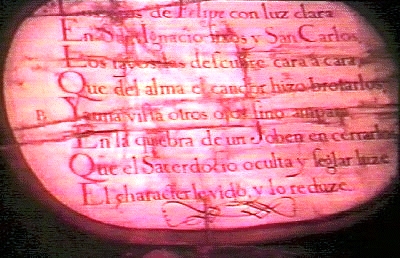 de Felipe con luz clara
En San Ignacio fixos y San Carlos,
Los rayos las descubre cara à cara,
Que del alma el candor hizo brotarlos,
P. Y a una vista otros ojos sino ampara
En la quiebra de un Joben en cerrarlos
Que el Sacerdocio oculta y seglar luze
El character le vidò, y lo reduze.